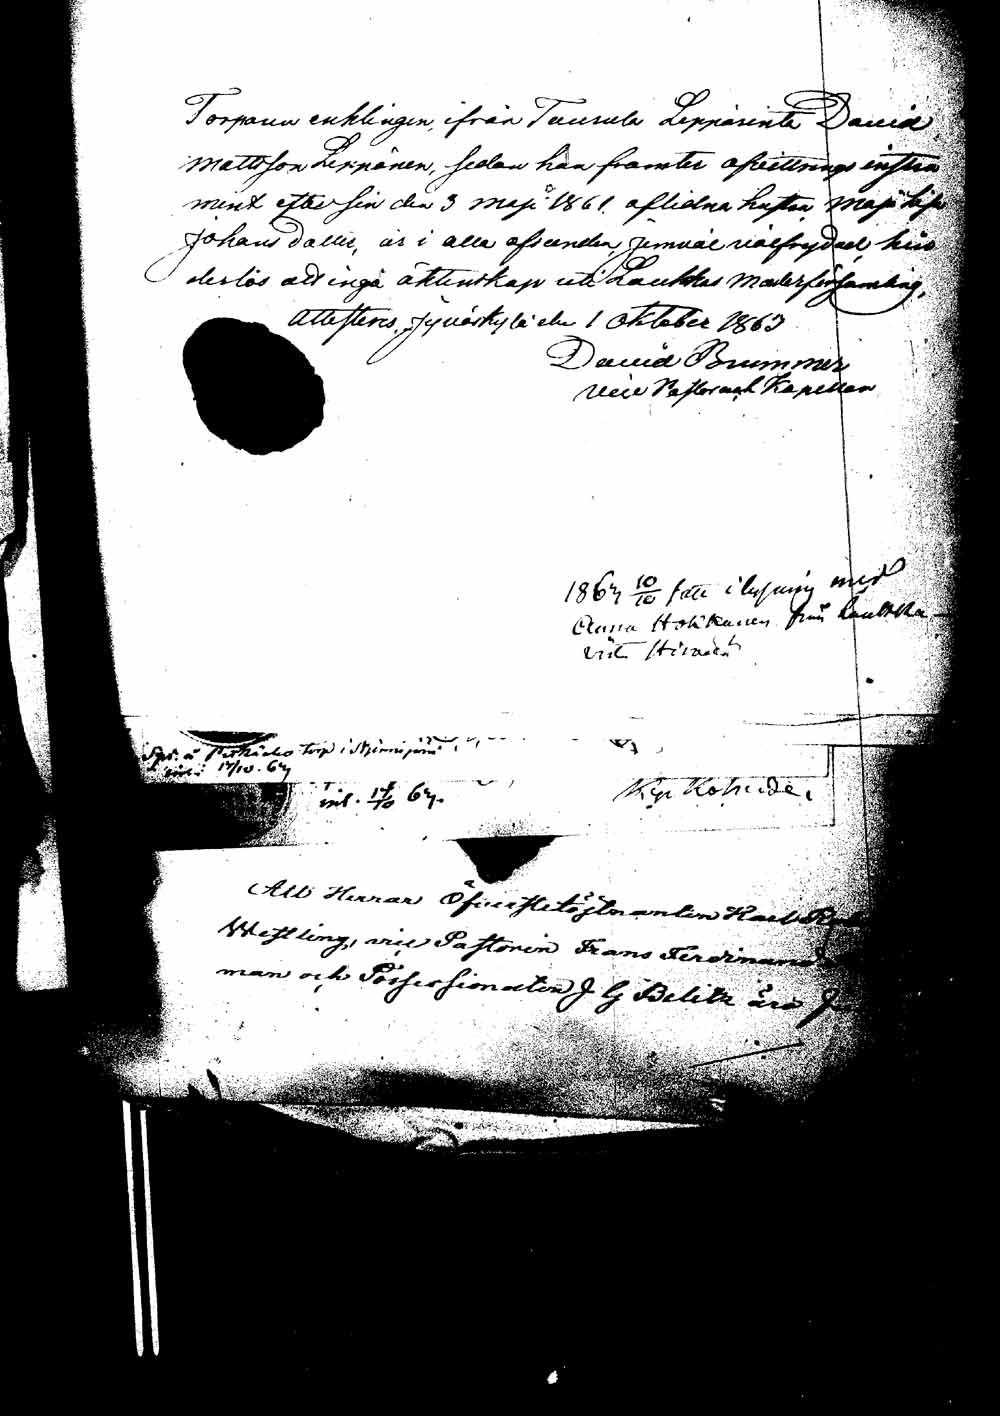 Torparen enklingen, ifrån Tuurula Leppärinta David
Mattsson Leppänen, sedan han framter afvittrings instru
ment efter sin den 3 Maji 1861 aflidna hustru Maja Caisa
Johans dotter, är i alla afseenden, jemväl välfrejdad, hin
derlös att ingå äktenskap uti Laukkas Moderförsamling,
Attesteras. Jyväskylä den 1 Oktober 1863
David Brummer
Vice Pastor och Kapellan
1863 10/10 till lysning med
Anna Hokkanen från Laukka
torp i
inl. 17/10. 63
inl. 17/10 63.
Att Herrar Öfverstelöjtnanten Karl
Wessling, vice Pastorn Frans Ferdinand
man och Possessionaten J G Belitz äro